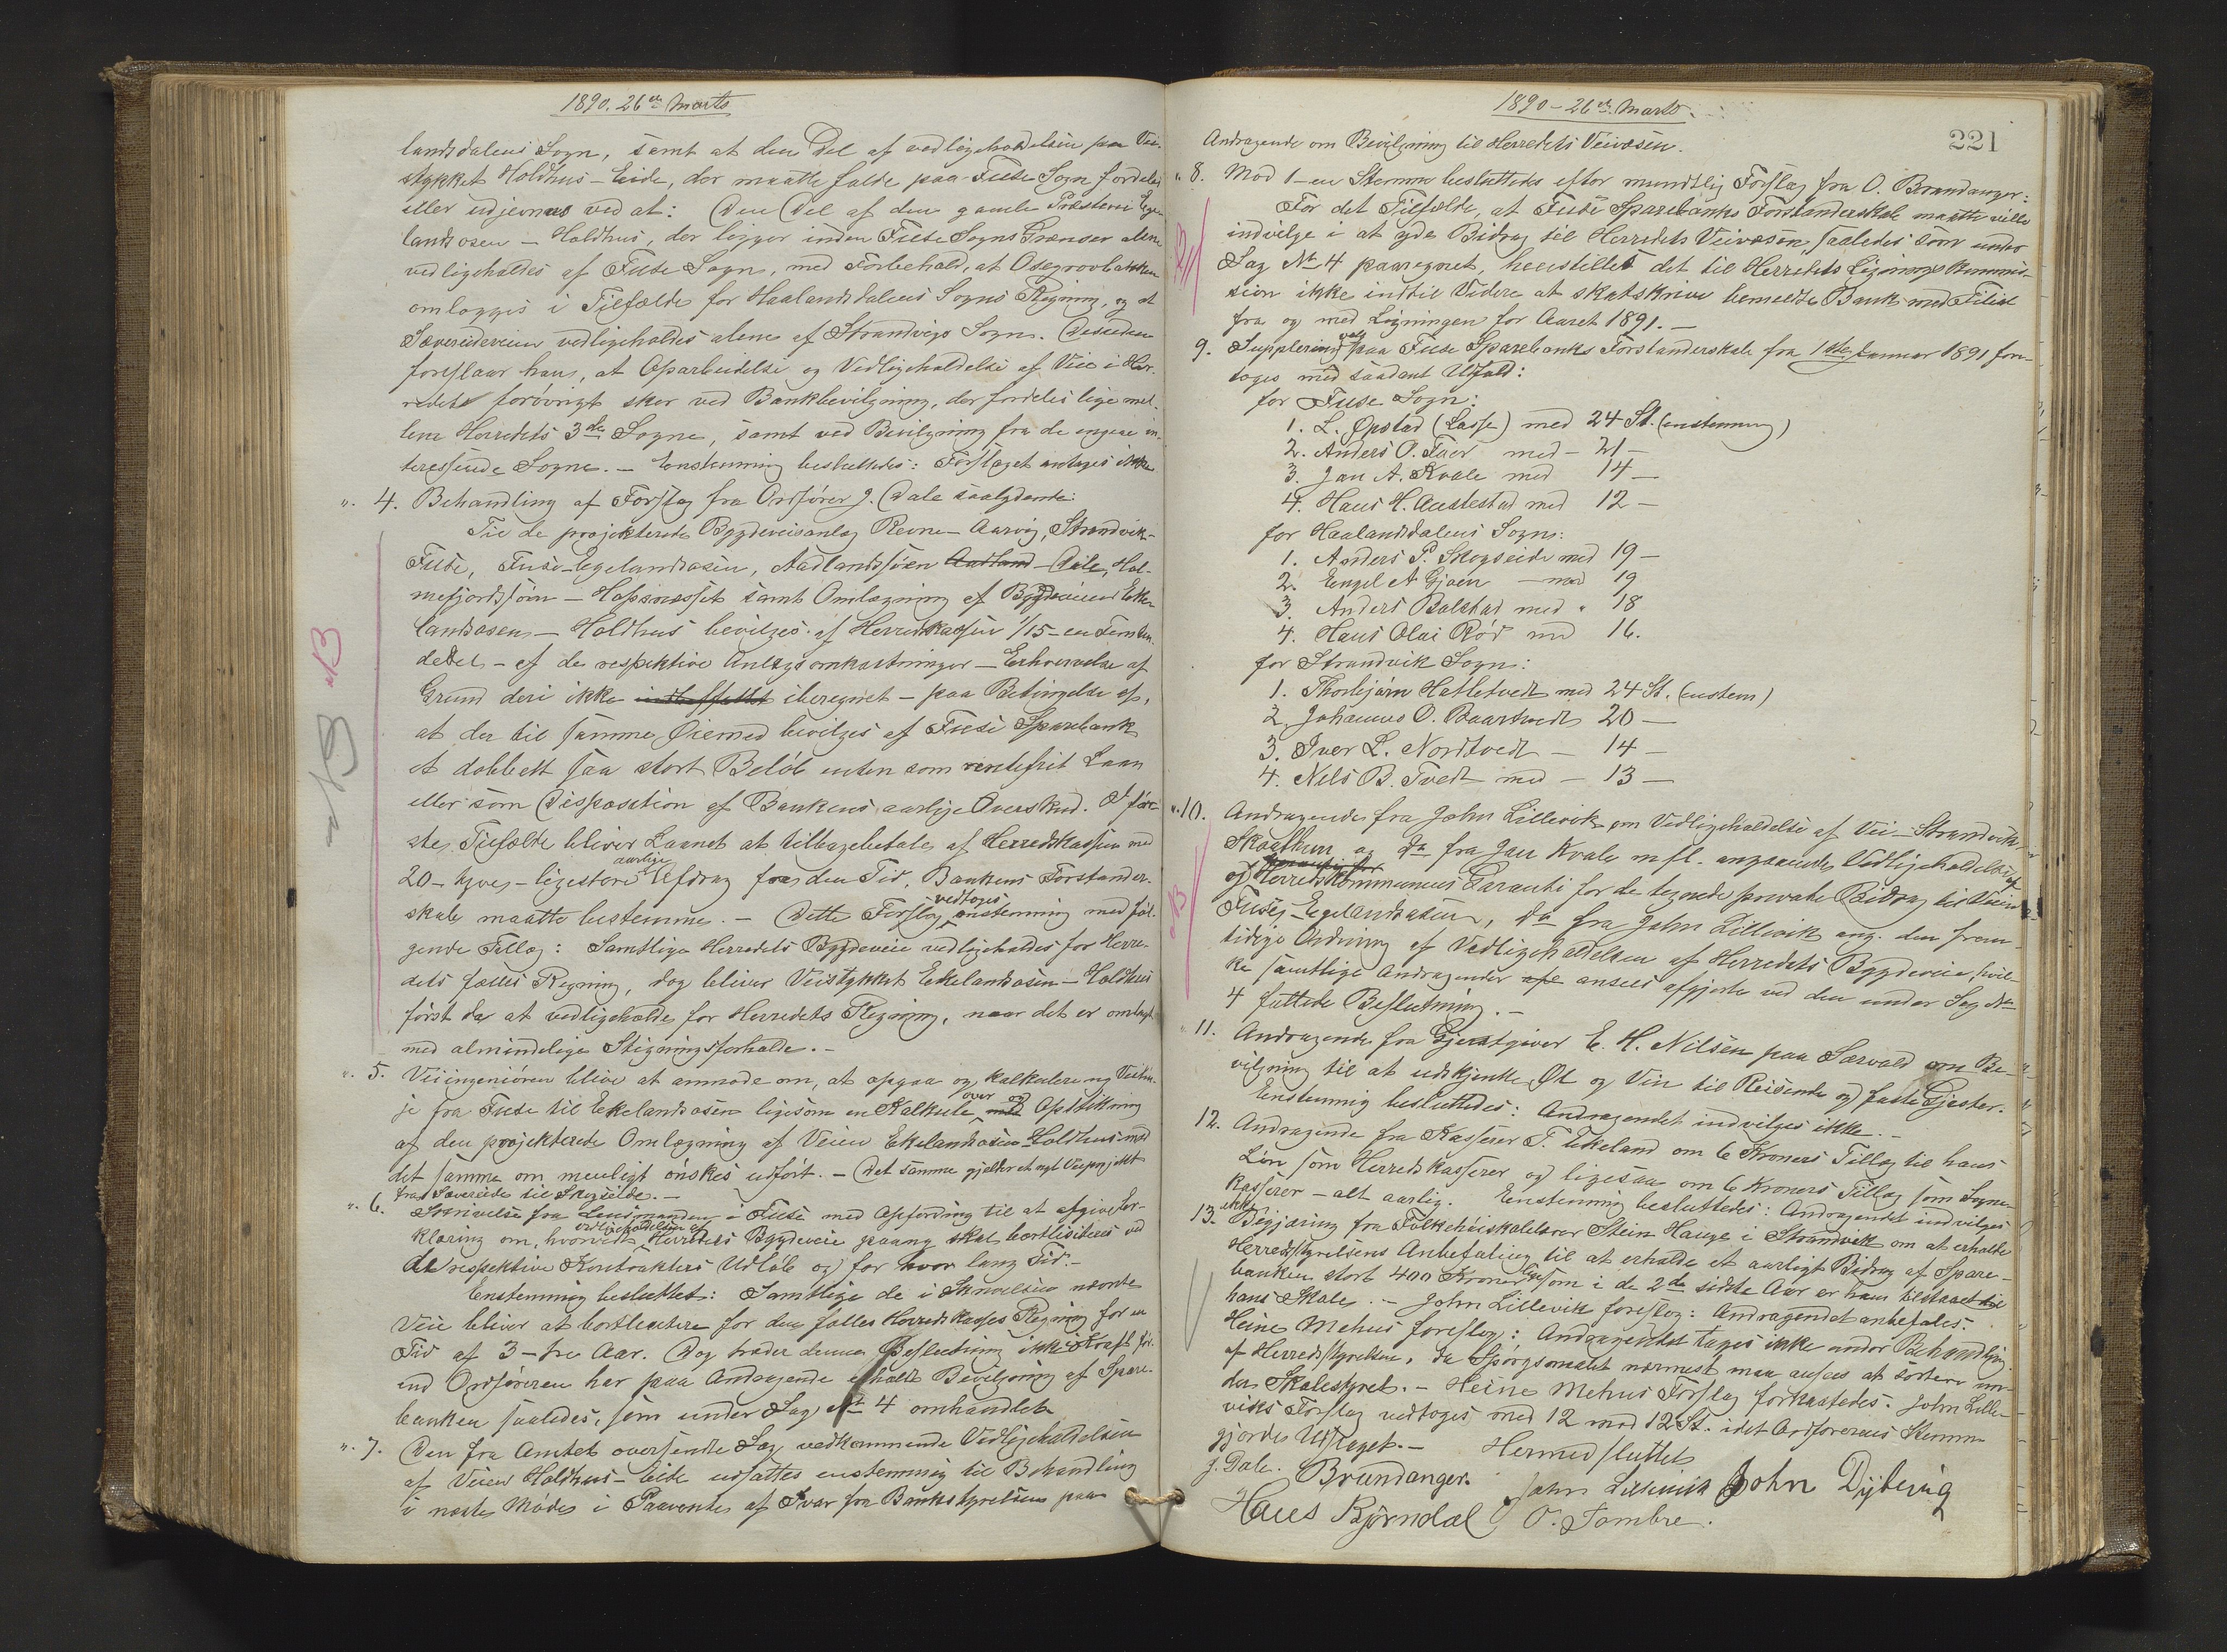 1890. 26de Marts
landsdalens Sogn, samt at den Del af vedligeholdelsen paa Vei-
stykket Holdhus – Eide, der maatte falde paa Fuse Sogn fordeles
eller udjevnes ved at: Den Del af den gamle Præstevei Ege-
landsosen – Holdhus, der ligger inden Fuse Sogns Grænser alene
vedligeholdes af Fuse Sogn, med Forbehold, at Osegrovbakken
omlægges i Tilfælde for Haalandsdalens Sogns Regning, og at
Sævereidveien vedligeholdes alene af Strandvigs Sogn. Desuden
foreslaar han, at Oparbeidelse og Vedligeholdelse af Veie i Her-
redet forøvrigt sker ved Bankbevilgning, der fordeles lige mel-
lem Herredets 3de Sogne, samt ved Bevilgning fra de engere in-
teresserede Sogne. – Enstemmig besluttedes: Forslaget antages ikke
". 4. Behandling af Forslag fra Ordfører J. Dale saalydende:
Til de projekterede Bygdeveisanlæg Revne – Aarvig, Strandvik –
Fuse, Fuse – Egelandsosen, Aadlandsjøen Aadland – Dale, Hol-
mefjordsjøen – Hopsnæsset samt Omlægning af Bygdeveien Eke-
landsosen – Holdhus bevilges af Herredskassen 1/15 – en Femten-
dedel – af de respektive Anlægsomkostninger – Erhvervelse af
Grund deri ikke iberegnet – paa Betingelse af,
at der til samme Øiemed bevilges af Fuse Sparebank
et dobbelt saa stort Beløb enten som rentefrit Laan
eller som Disposition af Bankens aarlige Overskud. I før-
ste Tilfælde bliver Laanet at tilbagebetale af Herredskassen med
20 – tyve – ligestore aarlige Afdrag fra den Tid, Bankens Forstander-
skab maatte bestemme. – Dette Forslag vedtoges enstemmig med føl-
gende Tillæg: Samtlige Herredets Bygdeveie vedligeholdes for Herre-
dets fælles Regning, dog bliver Veistykket Ekelandsosen – Holdhus
først da at vedligeholde for Herredets Regning, naar det er omlagt
med almindelige Stigningsforholde. –
". 5. Veiingeniøren blive at anmode om, at opgaa og kalkulere ny Veilin-
je fra Fuse til Ekelandsosen ligesom en Kalkule over og Opstikning
af den projekterede Omlægning af Veien Ekelandsosen – Holdhus med
det samme om muligt ønskes udført. – Det samme gjælder et nyt Veiprojekt
fra Sævereide til Skogseide. –
". 6. Skrivelse fra Lensmanden i Fuse med Opfordring til at afgive For-
klaring om, hvorvidt vedligeholdelsen af Herredets Bygdeveie paany skal bortliciteres ved
de respektive Kontrakters Udløb og for hvor lang Tid. –
Enstemmig besluttet: Samtlige de i Skrivelsen nævnte
Veie bliver at bortlicitere for den fælles Herredskasses Regning for en
Tid af 3 – tre Aar. Dog træder denne Beslutning ikke i Kraft før-
end Ordføreren har paa Andragende erholdt Bevilgning af Spare-
banken saaledes, som under Sag No 4 omhandlet
". 7. Den fra Amtet oversendte Sag vedkommende Vedligeholdelsen
af Veien Holdhus – Eide udsattes enstemmig til Behandling
i næste Møde i Paavente af Svar fra Bankstyrelsen paa
NB
NB
1890 – 26de Marts.
221
Andragende om Bevilgning til Herredets Veivæsen.
". 8. Mod 1 – en Stemme besluttedes efter mundtlig Forslag fra O. Brandanger:
For det Tilfælde, at Fuse Sparebanks Forstanderskab maatte ville
indvilge i at yde Bidrag til Herredets Veivæsen saaledes som under
Sag No 4 paaregnet, henstilles det til Herredets Ligningskommis-
sion ikke indtil Videre at skatskrive bemeldte Bank med Filial
fra og med Ligningen for Aaret 1891. –
9. Suppleringsvalg paa Fuse Sparebanks Forstanderskab fra 1ste Januar 1891 fore-
toges med saadant Udfald:
for Fuse Sogn:
1. L. Øpstad (Lasse) med 24 St. (enstemmig)
2. Anders O. Tuer med – 21 –
3. Jan A. Kvale med 14 –
4. Hans H. Austestad med 12 –
for Haalandsdalens Sogn:
1. Anders P. Skogseide med 19 –
2. Engel A Gjøen – med 19
3. Anders Bolstad med " 18
4. Hans Olai Rød med 16.
for Strandvik Sogn:
1. Thorbjørn Hatletvedt med 24 St. (enstem)
2. Johannes O. Baartvedt 20 –
3. Iver L. Nordtvedt – 14 –
4. Nils B. Tvedt med – 13 –
". 10. Andragende fra John Lillevik om Vedligeholdelse af Vei – Strandvik –
Skaathun og do fra Jan Kvale m fl. angaaende Vedligeholdelse af
og Herredskommunens Garanti for de tegnede private Bidrag til Veien
Fuse – Egelandsosen, do fra John Lillevik ang. den frem-
tidige Ordning af Vedligeholdelsen af Herredets Bygdeveie, hvil-
ke samtlige Andragender ansees afgjorte ved den under Sag No
4 fattede Beslutning. –
NB
" 11. Andragende fra Gjæstgiver E. H. Nilsen paa Sævold om Be-
vilgning til at udskjenke Øl og Vin til Reisende og faste Gjester.
Enstemmig besluttedes: Andragendet indvilges ikke. –
12. Andragende fra Kasserer T. Ekeland om 6 Kroners Tillæg til hans
Løn som Herredskasserer og ligesaa om 6 Kroners Tillæg som Sogne-
kasserer – alt aarlig. Enstemmig besluttedes: Andragendet indvilges
ikke.
13. Begjæring fra Folkehøiskolelærer Stein Hauge i Strandvik om at erholde
Herredsstyrelsens Anbefaling til at erholde et aarligt Bidrag af Spare-
banken stort 400 Kroner ligesom i de 2de sidste Aar er ham tilstaaet til
hans Skole. – John Lillevik foreslog: Andragendet anbefales.
Heine Mehus foreslog: Andragendet tages ikke under Behandling
af Herredsstyrelsen, da Spørgsmaalet nærmest maa ansees at sortere un-
der Skolestyret. – Heine Mehus Forslag forkastedes. John Lille-
viks Forslag vedtoges med 12 mod 12 St. idet Ordførerens Stemme
gjorde Udslaget. – Hermed sluttet
J. Dale. Brandanger. John Lillevik John Dybvig
Hans Bjørndal O. Tombre.